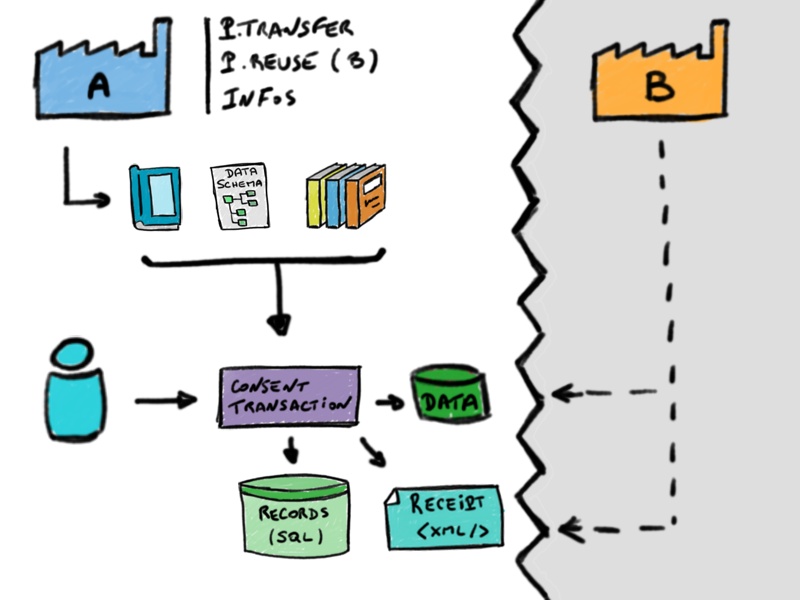 A
P.TRANSFER
P.REUSE (B)
INFOS
B
DATA
SCHEMA
CONSENT
TRANSACTION
DATA
RECORDS
(SQL)
RECEIPT
<XML/>